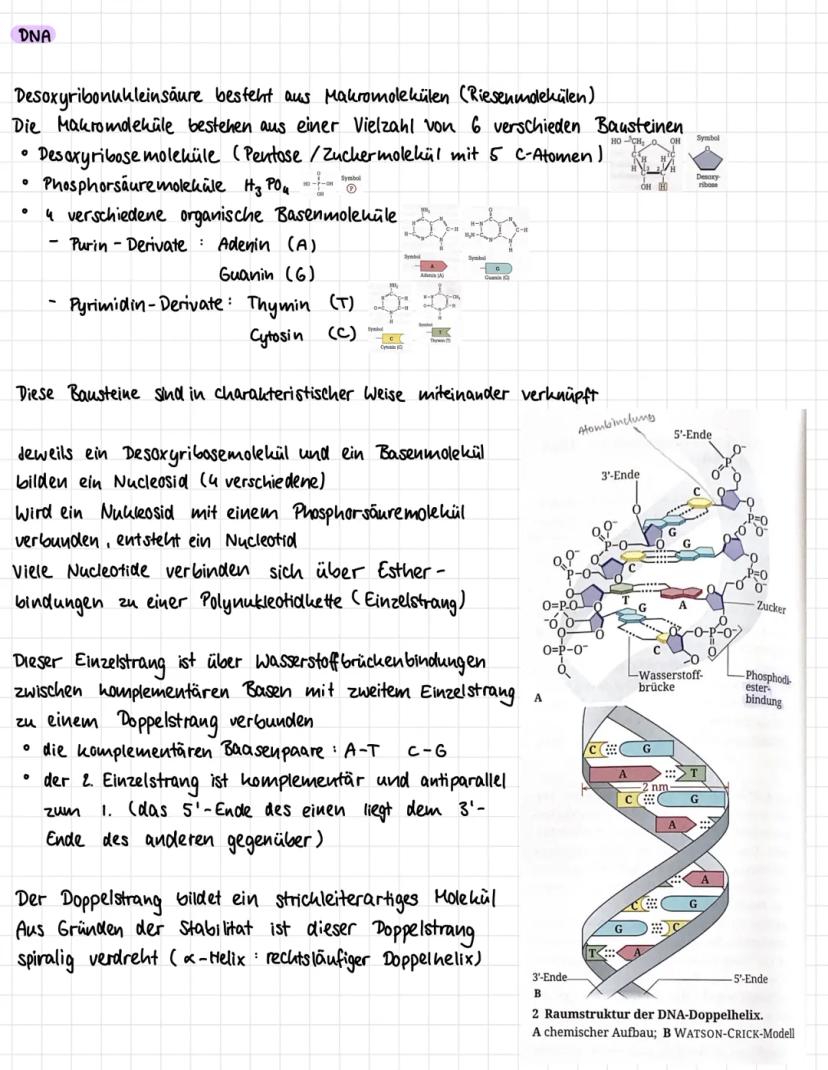 DNA
Desoxyribonukleinsäure besteht aus Makromolekülen (Riesenmolekülen)
Die Makromoleküle bestehen aus einer Vielzahl von 6 verschieden Bausteinen
• Desoxyribosemoleküle (Pentose / Zuckermolekül mit 5 C-Atomen)
Symbol
Desoxy-
ribose
• Phosphorsäuremoleküle H3PO4
Symbol
P
• 4 verschiedene organische Basenmoleküle
- Purin-Derivate : Adenin (A)
Guanin (G)
Symbol
A
Adenin (A)
Symbol
G
Guanin (G)
- Pyrimidin-Derivate : Thymin (T)
Cytosin (C)
Symbol
C
Cytosin (C)
Symbol
T
Thymin (T)
Diese Bausteine sind in charakteristischer Weise miteinander verknüpft
Jeweils ein Desoxyribosemolekül und ein Basenmolekül
bilden ein Nucleosid (4 verschiedene)
Wird ein Nukleosid mit einem Phosphorsäuremolekül
verbunden, entsteht ein Nucleotid
Viele Nucleotide verbinden sich über Esther-
bindungen zu einer Polynukleotidkette (Einzelstrang)
Dieser Einzelstrang ist über Wasserstoffbrückenbindungen
zwischen komplementären Basen mit zweitem Einzelstrang
zu einem Doppelstrang verbunden
• die komplementären Baasenpaare : A-T C-G
• der 2. Einzelstrang ist komplementär und antiparallel
zum 1. (das 5'-Ende des einen liegt dem 3'-
Ende des anderen gegenüber)
Der Doppelstrang bildet ein strickleiterartiges Molekül
Aus Gründen der Stabilität ist dieser Doppelstrang
spiralig verdreht (α-Helix : rechtsläufiger Doppelhelix)
Atombindung
5'-Ende
3'-Ende
C
G
C
G
T
A
G
C
Zucker
Wasserstoff-
brücke
Phosphodi-
ester-
bindung
A
C G
A T
2 nm
C G
A
A
C G
G C
T A
3'-Ende
5'-Ende
B
2 Raumstruktur der DNA-Doppelhelix.
A chemischer Aufbau; B WATSON-CRICK-Modell